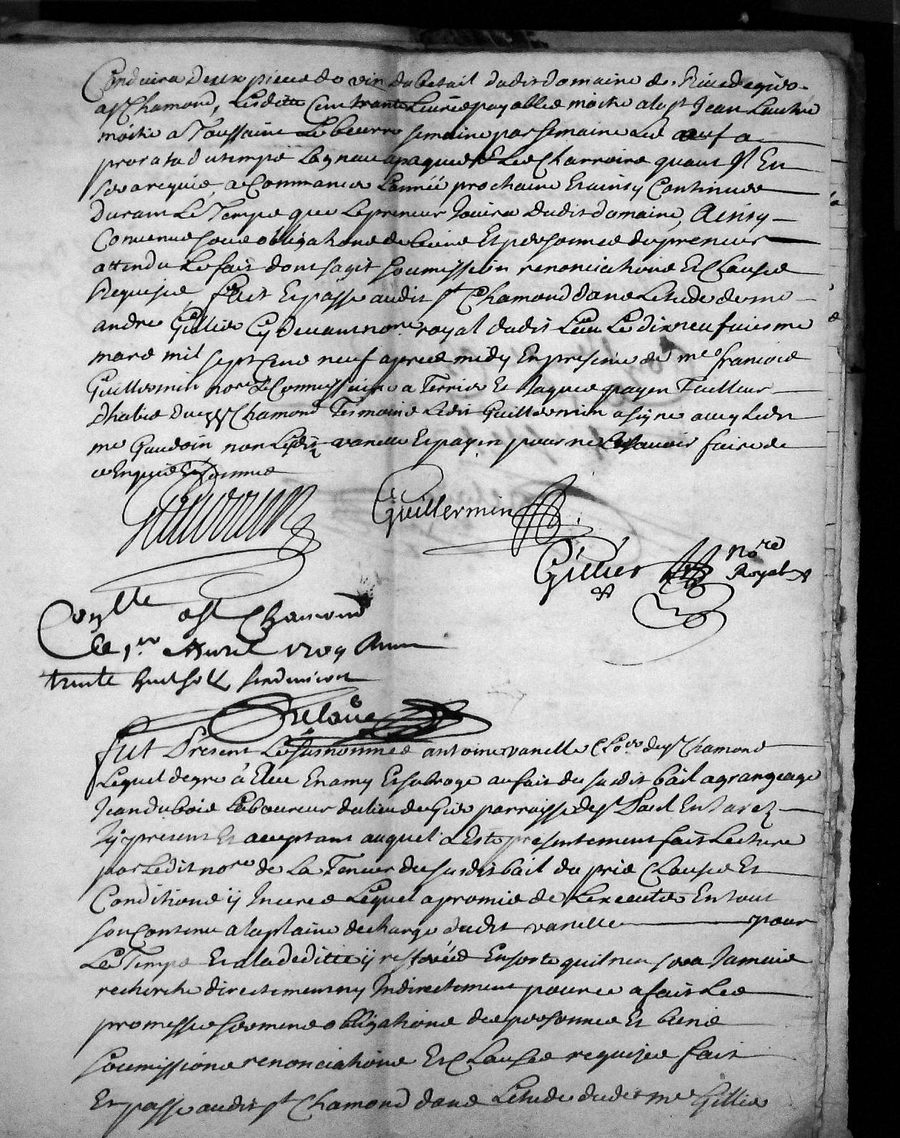 Conduira deux piece de vin du betail dudit domaine de
a St Chamond, Lesditte Cent trante Livres payable moitie a la st Jean Lautre
moitie a Toussaint Le beurre semaine par semaine Les œuf a
prorata du temps Lagneau a paques et Les Charroirs quant Il En
sera requis, a Commancer Lannée prochaine Et ainsy Continuer
durant Le Temps que Le preneur Jouira dudit domaine, Ainsy
Convenus sous obligations de biens Et personnes du preneur
attendu Le fait dont sagit soumissions renonciations Et Clauses
Requises, fait Et passé audit St Chamond dans Letude de me
andre Gillier Cy devant nore royal dudit Lieu Le dix neufuiesme
mars mil sept Cens neuf apres midy En presence de me francois
Guillermin nore Et Commissaire a Terrier Et Jaques payen Tailleur
dhabis dudit St Chamond Tesmoins Ledit Guillermin a signe avec Ledit
me Gaudoin non Ledit vanelle Et payen pour ne Le savoir faire de
ce Enquis Et sommes
Gaudouin
Guillermin
Gillier nore
Royal
Conlle a St Chamond
le 1er Avril 1709 Reçu
trente huit sols
Delaüe
fut Present Le susnommes antoine vanelle dud St Chamond
Lequel de gre à Eleu En amy Et subroge au fait du susdit bail a grangeage
Jean duboie Laboureur du lieu de parroisse de St Paul En Jarez
Icy present Et aceptant auquel a Este presentement fait Lecture
par Ledit nore de La Teneur du susdit bail du prix Clauses Et
Conditions y Inceres Lequel a promis de Lexecuter En tout
son Contenu a la plaine decharge dudit vanelle pour
Le Temps Et a la deditte y reservée En sorte quil nen sera Jamais
recherche directement ny Indirectement pour ce a fait Les
promesses sermens obligations des personnes Et biens
soumissions renonciations Et Clauses requises fait
Et passe audit St Chamond dans Letude dudit me Gillier